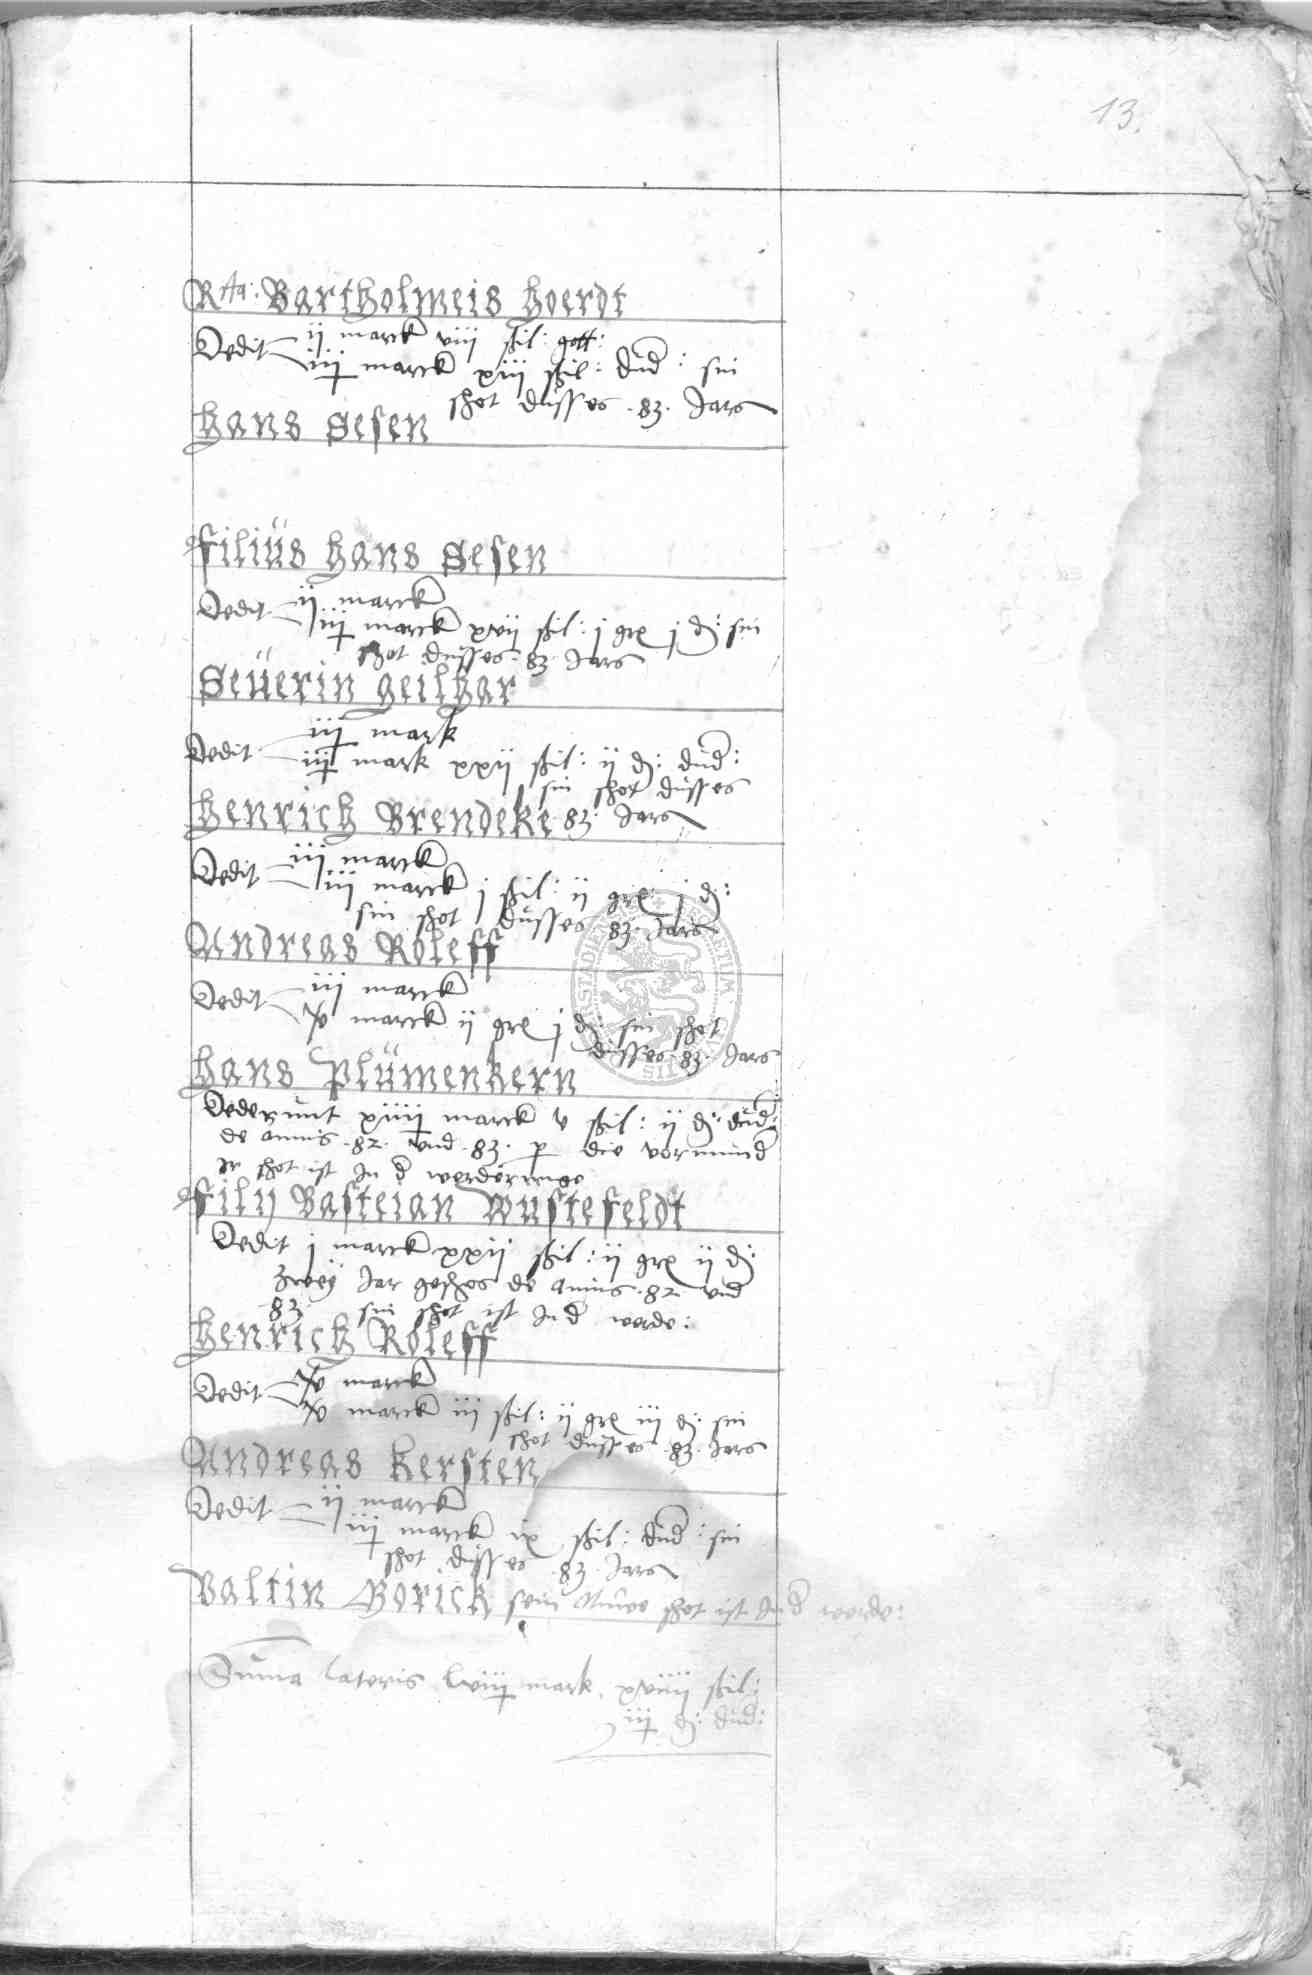 13.
Rta: Bartholmeis hoerdt
Dedit ij marck viij ßil: gott:
iiij marck xiij ßil: dnd: sin
shot dusses .83. Jars
hans Sesen
filiüs hans Sesen
Dedit ij marck
iiij marck xvij ßil: j grx j d: sin
shot dusses .83. Jars
Seüerin heilhar
Dedit iiij mark
iiij mark xxij ßil: ij d: dnd:
sin shot dusses
henrich Brendeke .83. Jars
Dedit iij marck
iij marck j ßil: ij grx j d:
sin shot dusses .83. Jars
Andreas Roleff
Dedit iij marck
v marck ij grx j d: sin shot
dusses .83. Jars
hans plümenkern
Dederunt xiiij marck v ßil: ij d: dnd:
de annis .82. vnd .83. p die vormund
Ir shot ist In d werderunge
filij Basteian Wustefeldt
Dedit j marck xxij ßil: ij grx ij d:
zweÿ Jar geshos de annis .82. vnd
83 sin shot ist In d werde:
henrich Roleff
Dedit v marck
v marck iij ßil: ij grx iij d: sin
shot dusses .83. Jars
Andreas kersten
Dedit ij marck
iij marck ix ßil: dnd: sin
shot dusses .83. Jars
Valtin Gorick sein shot ist In d werde:
Summa lateris lviij mark. xviiij ßil:
iiij d: dnd: